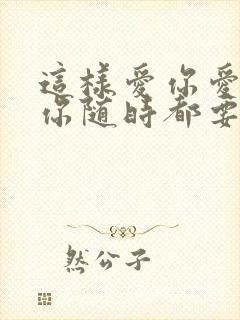 這樣愛你愛
你隨時都要
然公子